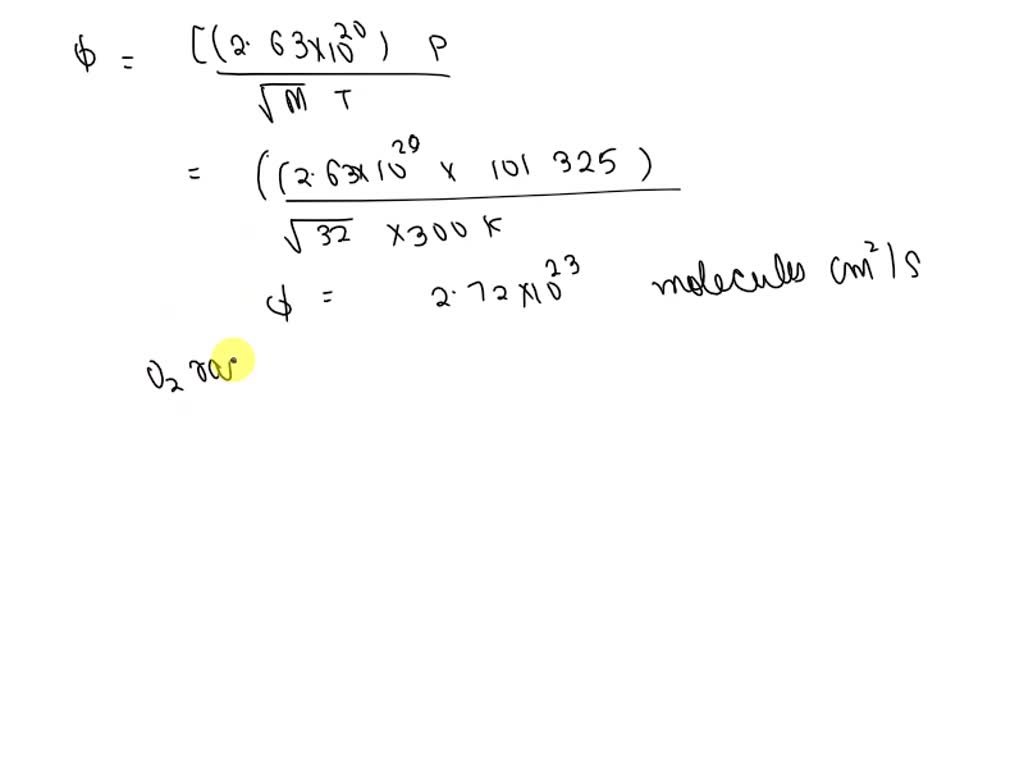 φ = [(2.63×10²⁰) P
√M T
= ((2.63×10²⁰ × 101 325)
√32 ×300 K
φ = 2.72×10²³ molecules cm²/s
O₂